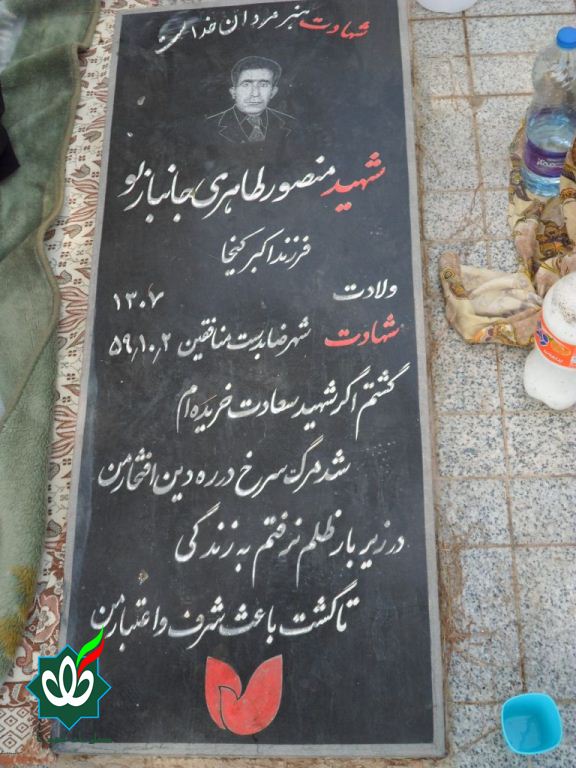 شهادت هنر مردان خداست
شهید منصور طاهری جانبازلو
فرزند اکبر کیخا
ولادت ۱۳۰۷
شهادت شهرضا بدست منافقین ۵۹٫۱۰٫۲
گشتم اگر شهید سعادت خریده ام
شد مرگ سرخ در ره دین افتخار من
در زیر بار ظلم نرفتم به زندگی
تا گشت باعث شرف و اعتبار من